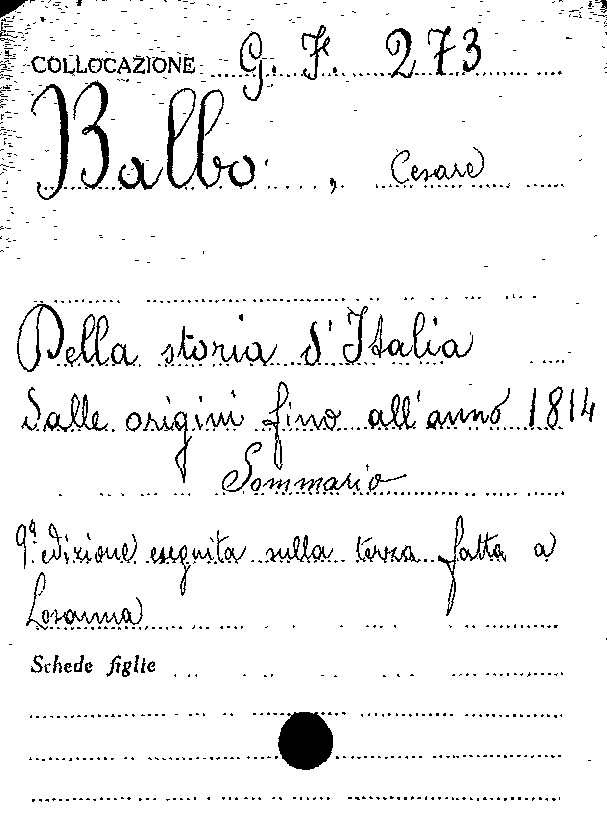 COLLOCAZIONE G. F. 273
Balbo , Cesare
Della storia d'Italia
dalle origini fino all'anno 1814
Sommario
9ª edizione eseguita sulla terza fatta a
Losanna
Schede figlie